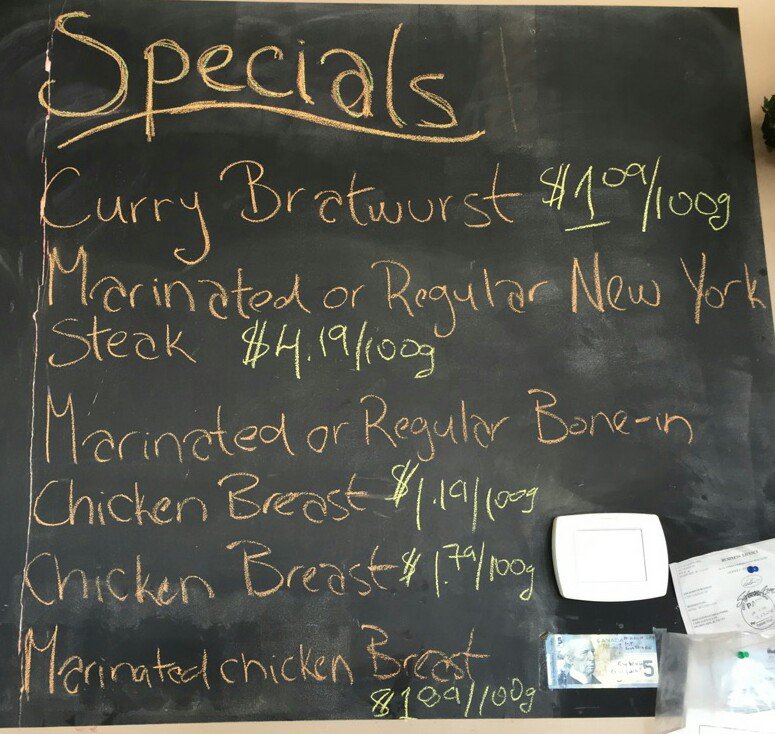 Specials
Curry Bratwurst $1.09/100g
Marinated or Regular New York
Steak $4.19/100g
Marinated or Regular Bone-in
Chicken Breast $1.19/100g
Chicken Breast $1.79/100g
Marinated chicken Breast
$1.89/100g
BUSINESS LICENCE
5
CANADA
5